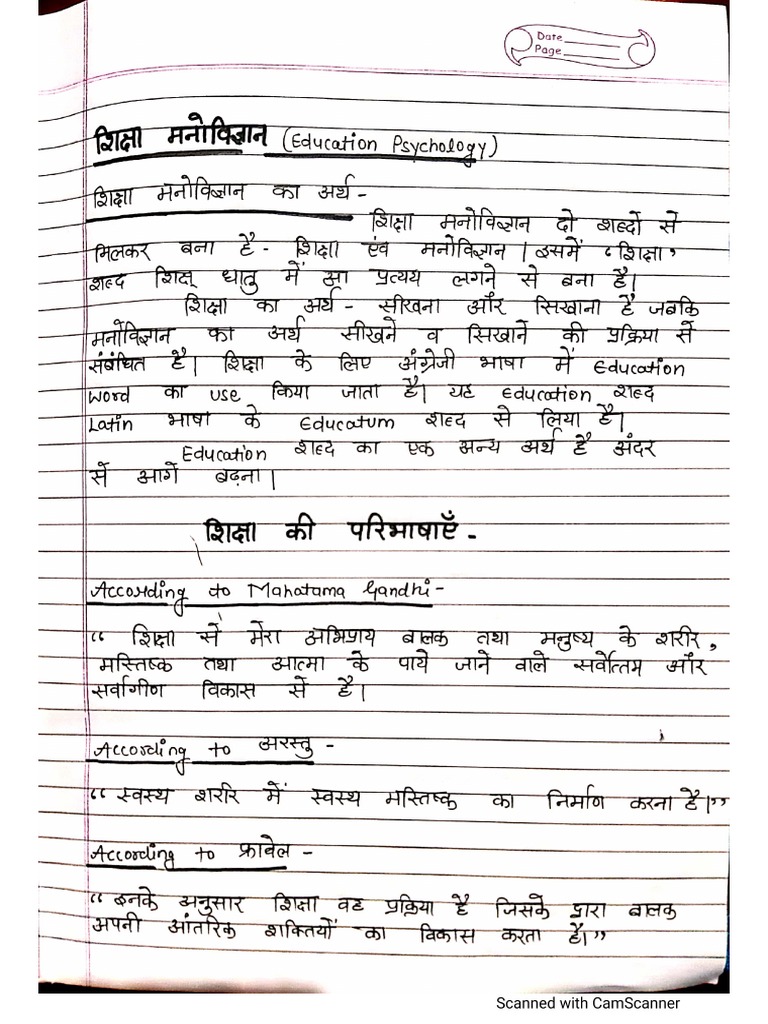 Date
Page
शिक्षा मनोविज्ञान (Education Psychology)
शिक्षा मनोविज्ञान का अर्थ -
शिक्षा मनोविज्ञान दो शब्दों से
मिलकर बना है - शिक्षा एंव मनोविज्ञान। इसमें ‘शिक्षा’
शब्द शिक्ष् धातु में आ प्रत्यय लगने से बना है।
शिक्षा का अर्थ - सीखना और सिखाना है जबकि
मनोविज्ञान का अर्थ सीखने व सिखाने की प्रक्रिया से
संबंधित है। शिक्षा के लिए अंग्रेजी भाषा में Education
word का use किया जाता है। यह Education शब्द
Latin भाषा के Educatum शब्द से लिया है।
Education शब्द का एक अन्य अर्थ है अंदर
से आगे बढ़ना।
शिक्षा की परिभाषाएँ -
According to Mahatama Gandhi -
“ शिक्षा से मेरा अभिप्राय बालक तथा मनुष्य के शरीर,
मस्तिष्क तथा आत्मा के पाये जाने वाले सर्वोत्तम और
सर्वागीण विकास से है।
According to अरस्तु -
“ स्वस्थ शरीर में स्वस्थ मस्तिष्क का निर्माण करना है।”
According to फ्राबेल -
“ इनके अनुसार शिक्षा वह प्रक्रिया है जिसके द्वारा बालक
अपनी आंतरिक शक्तियों का विकास करता है।”
Scanned with CamScanner